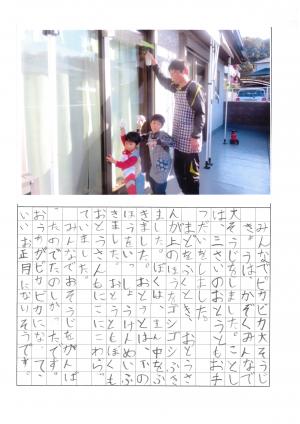 みんなでピカピカ大そうじ
きょうは、かぞくみんなで
大そうじをしました。ことし
は、三さいのおとうともお手
つだいをしました。
まどをふくとき、おとうさ
んが上のほうをゴシゴシふき
ました。ぼくは、まん中をふ
きました。おとうとは、下の
ほうをいっしょうけんめいふ
きました。おとうともぼくも
おとうさんもにこにこわらっ
ていました。
みんなでおそうじをがんば
ったのでたのしかったです。
おうちがピカピカになって、
いいお正月になりそうです。